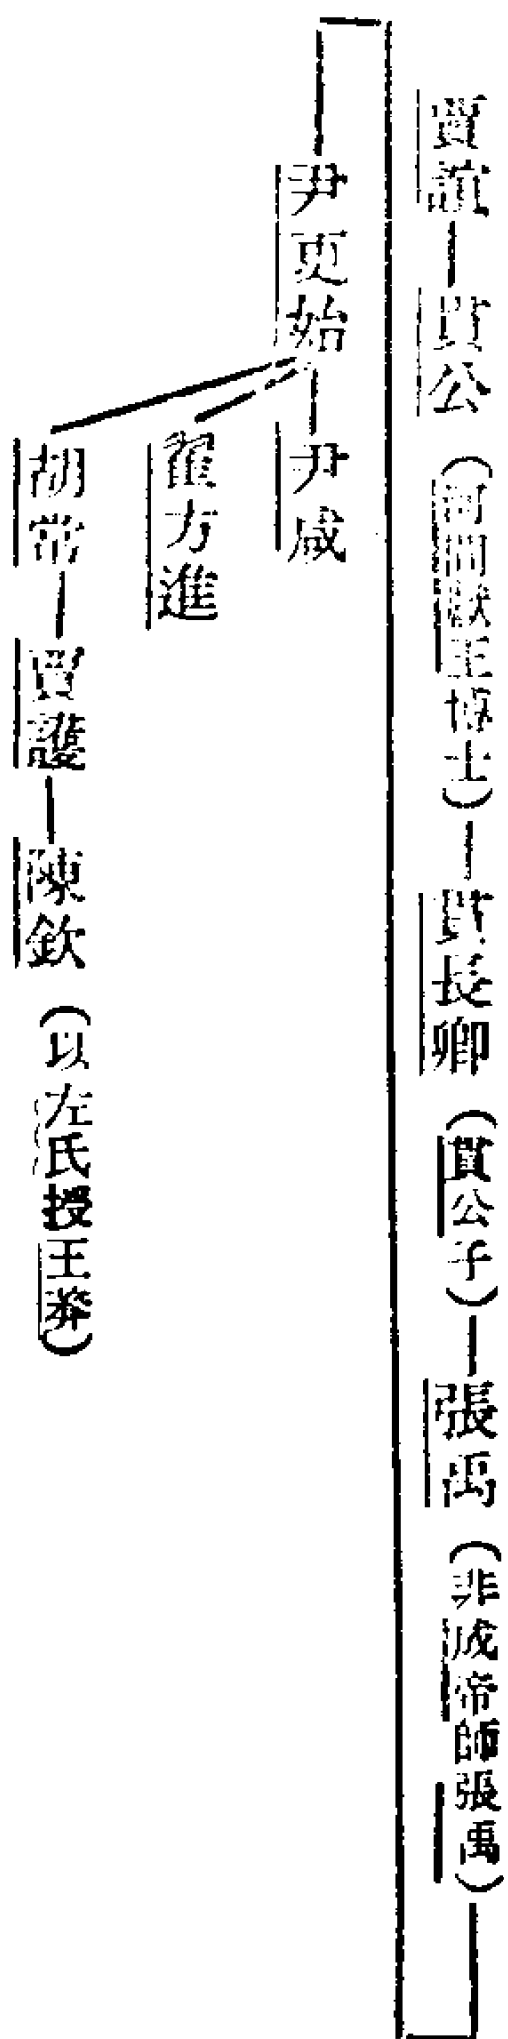 賈誼—貫公（河間獻王博士）—貫長卿（貫公子）—張禹（非成帝師張禹）
尹更始—尹咸
翟方進
胡常—賈護—陳欽（以左氏授王莽）